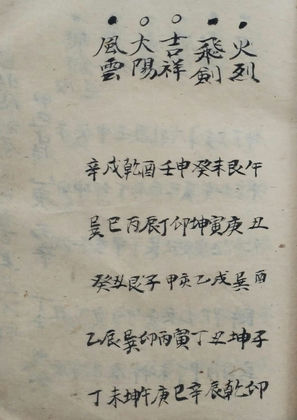 火烈
飛劍
吉祥
大陽
風雲
午丑酉子卯
艮庚巽坤乾
未寅戌丑辰
癸坤乙丁辛
申卯亥寅巳
壬丁甲丙庚
酉辰子卯午
乾丙艮巽坤
戌巳丑辰未
辛巽癸乙丁